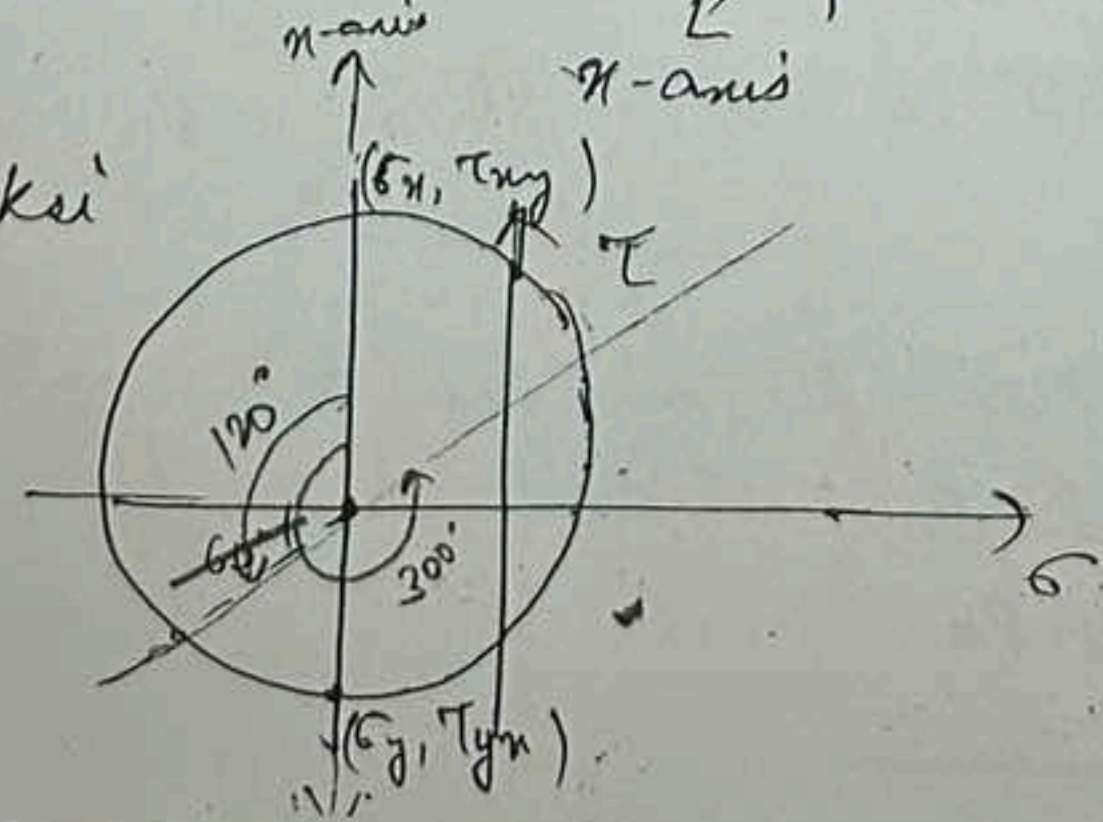 x-axis
x-axis
ksi
(σx, τxy)
τ
120°
300°
σ
(σy, τyx)